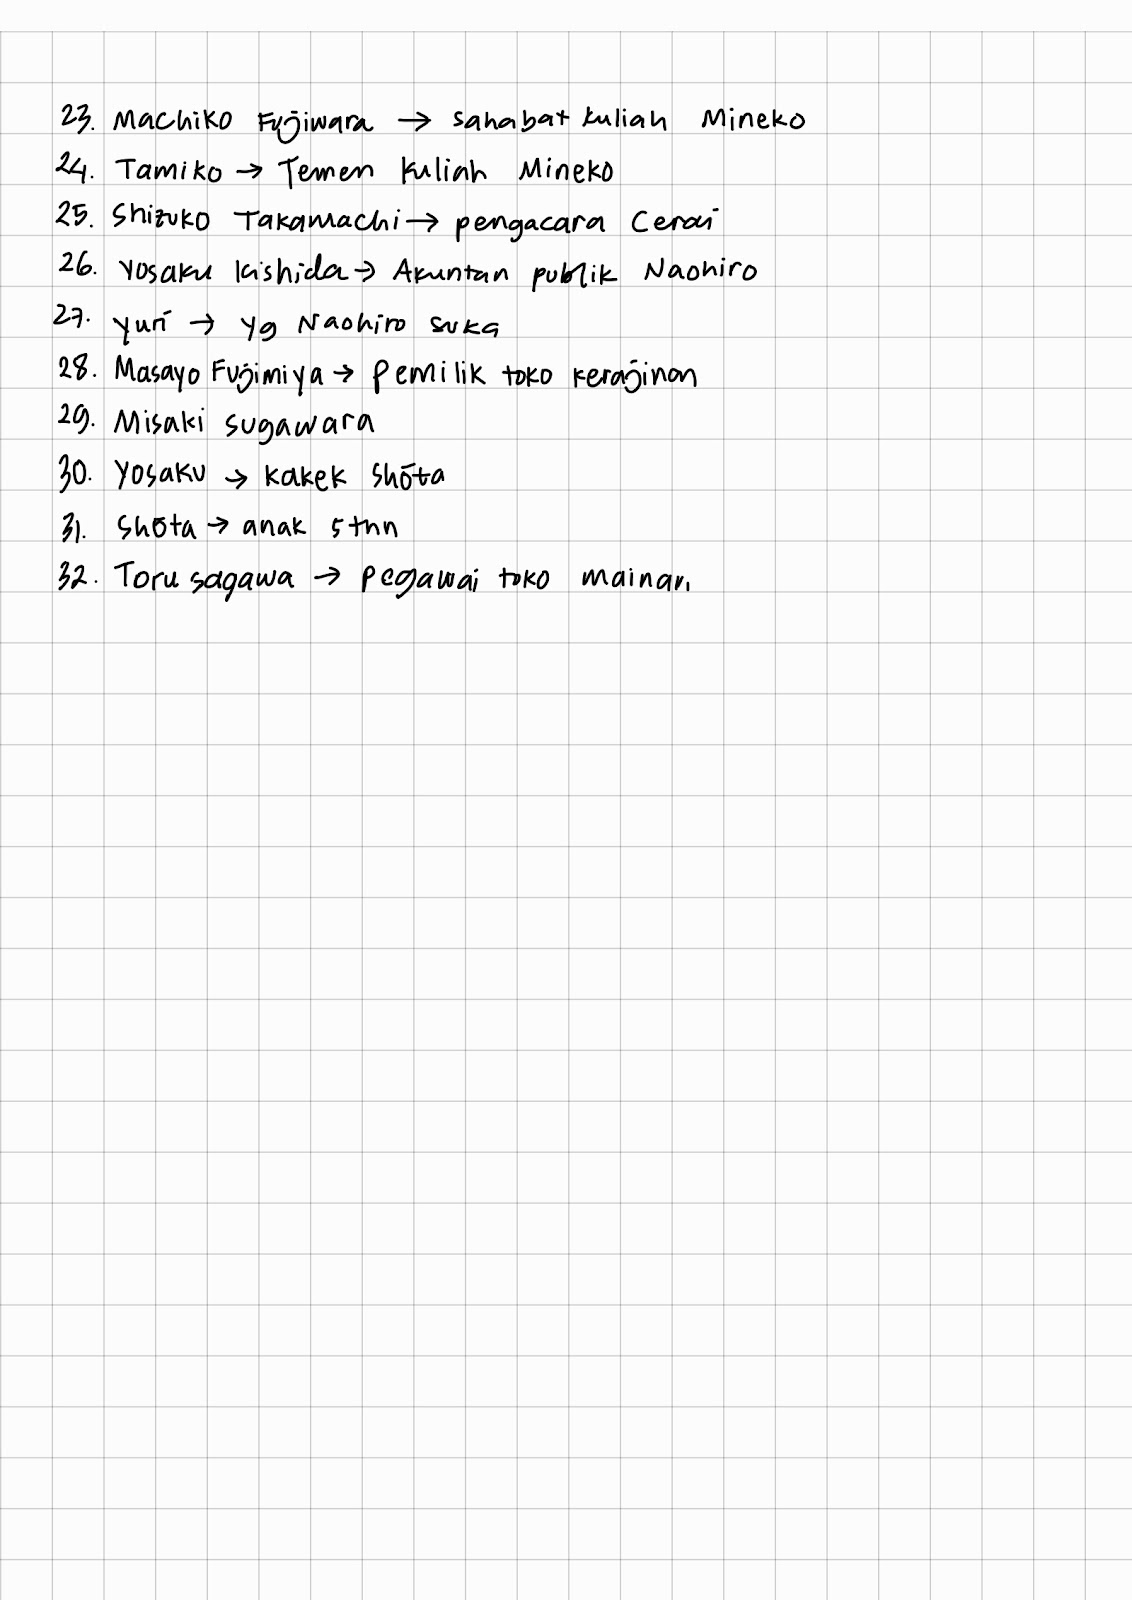 23. Machiko Fujiwara → sahabat kuliah Mineko
24. Tamiko → Temen kuliah Mineko
25. Shizuko Takamachi → pengacara Cerai
26. Yosaku Kishida → Akuntan publik Naohiro
27. Yuri → yg Naohiro suka
28. Masayo Fujimiya → pemilik toko kerajinan
29. Misaki Sugawara
30. Yosaku → kakek Shōta
31. Shōta → anak 5 thn
32. Toru sagawa → pegawai toko mainan